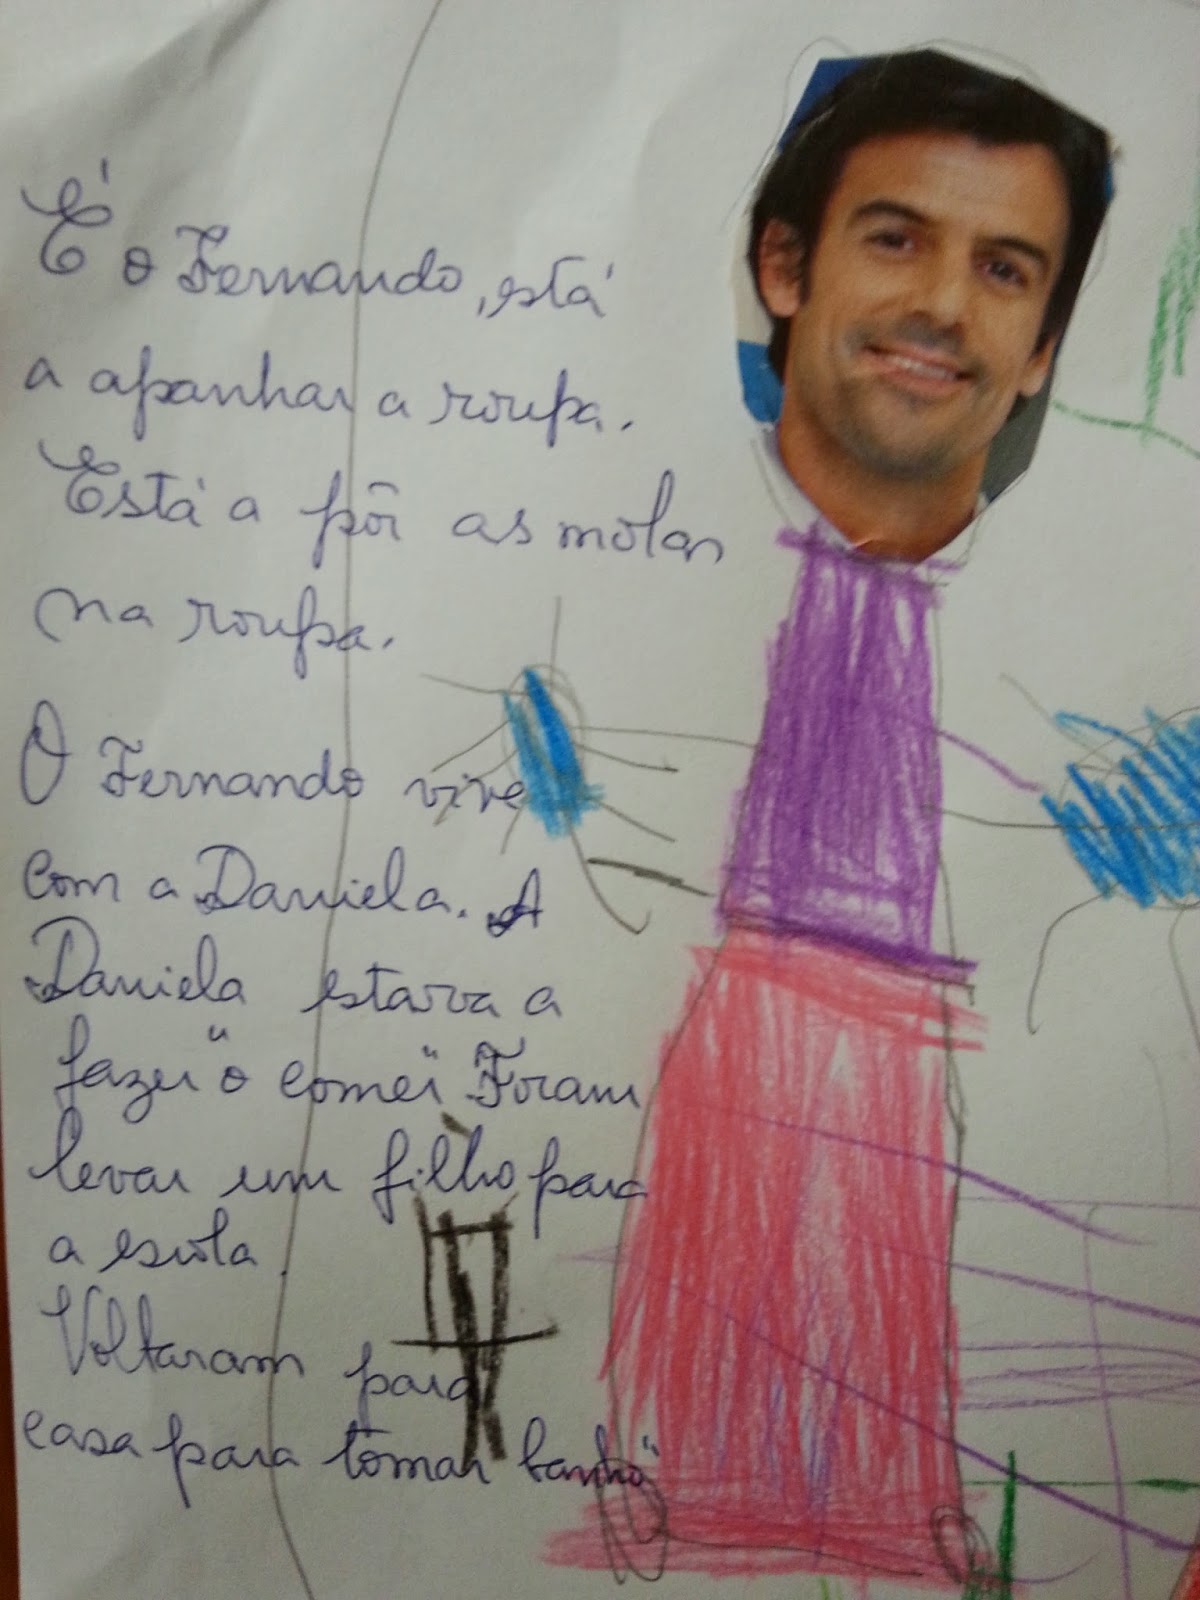 É o Fernando, está
a apanhar a roupa.
Está a pôr as molas
na roupa.
O Fernando vive
com a Daniela. A
Daniela estava a
fazer "o comer" Foram
levar um filho para
a escola.
Voltaram para
casa para tomar banho"